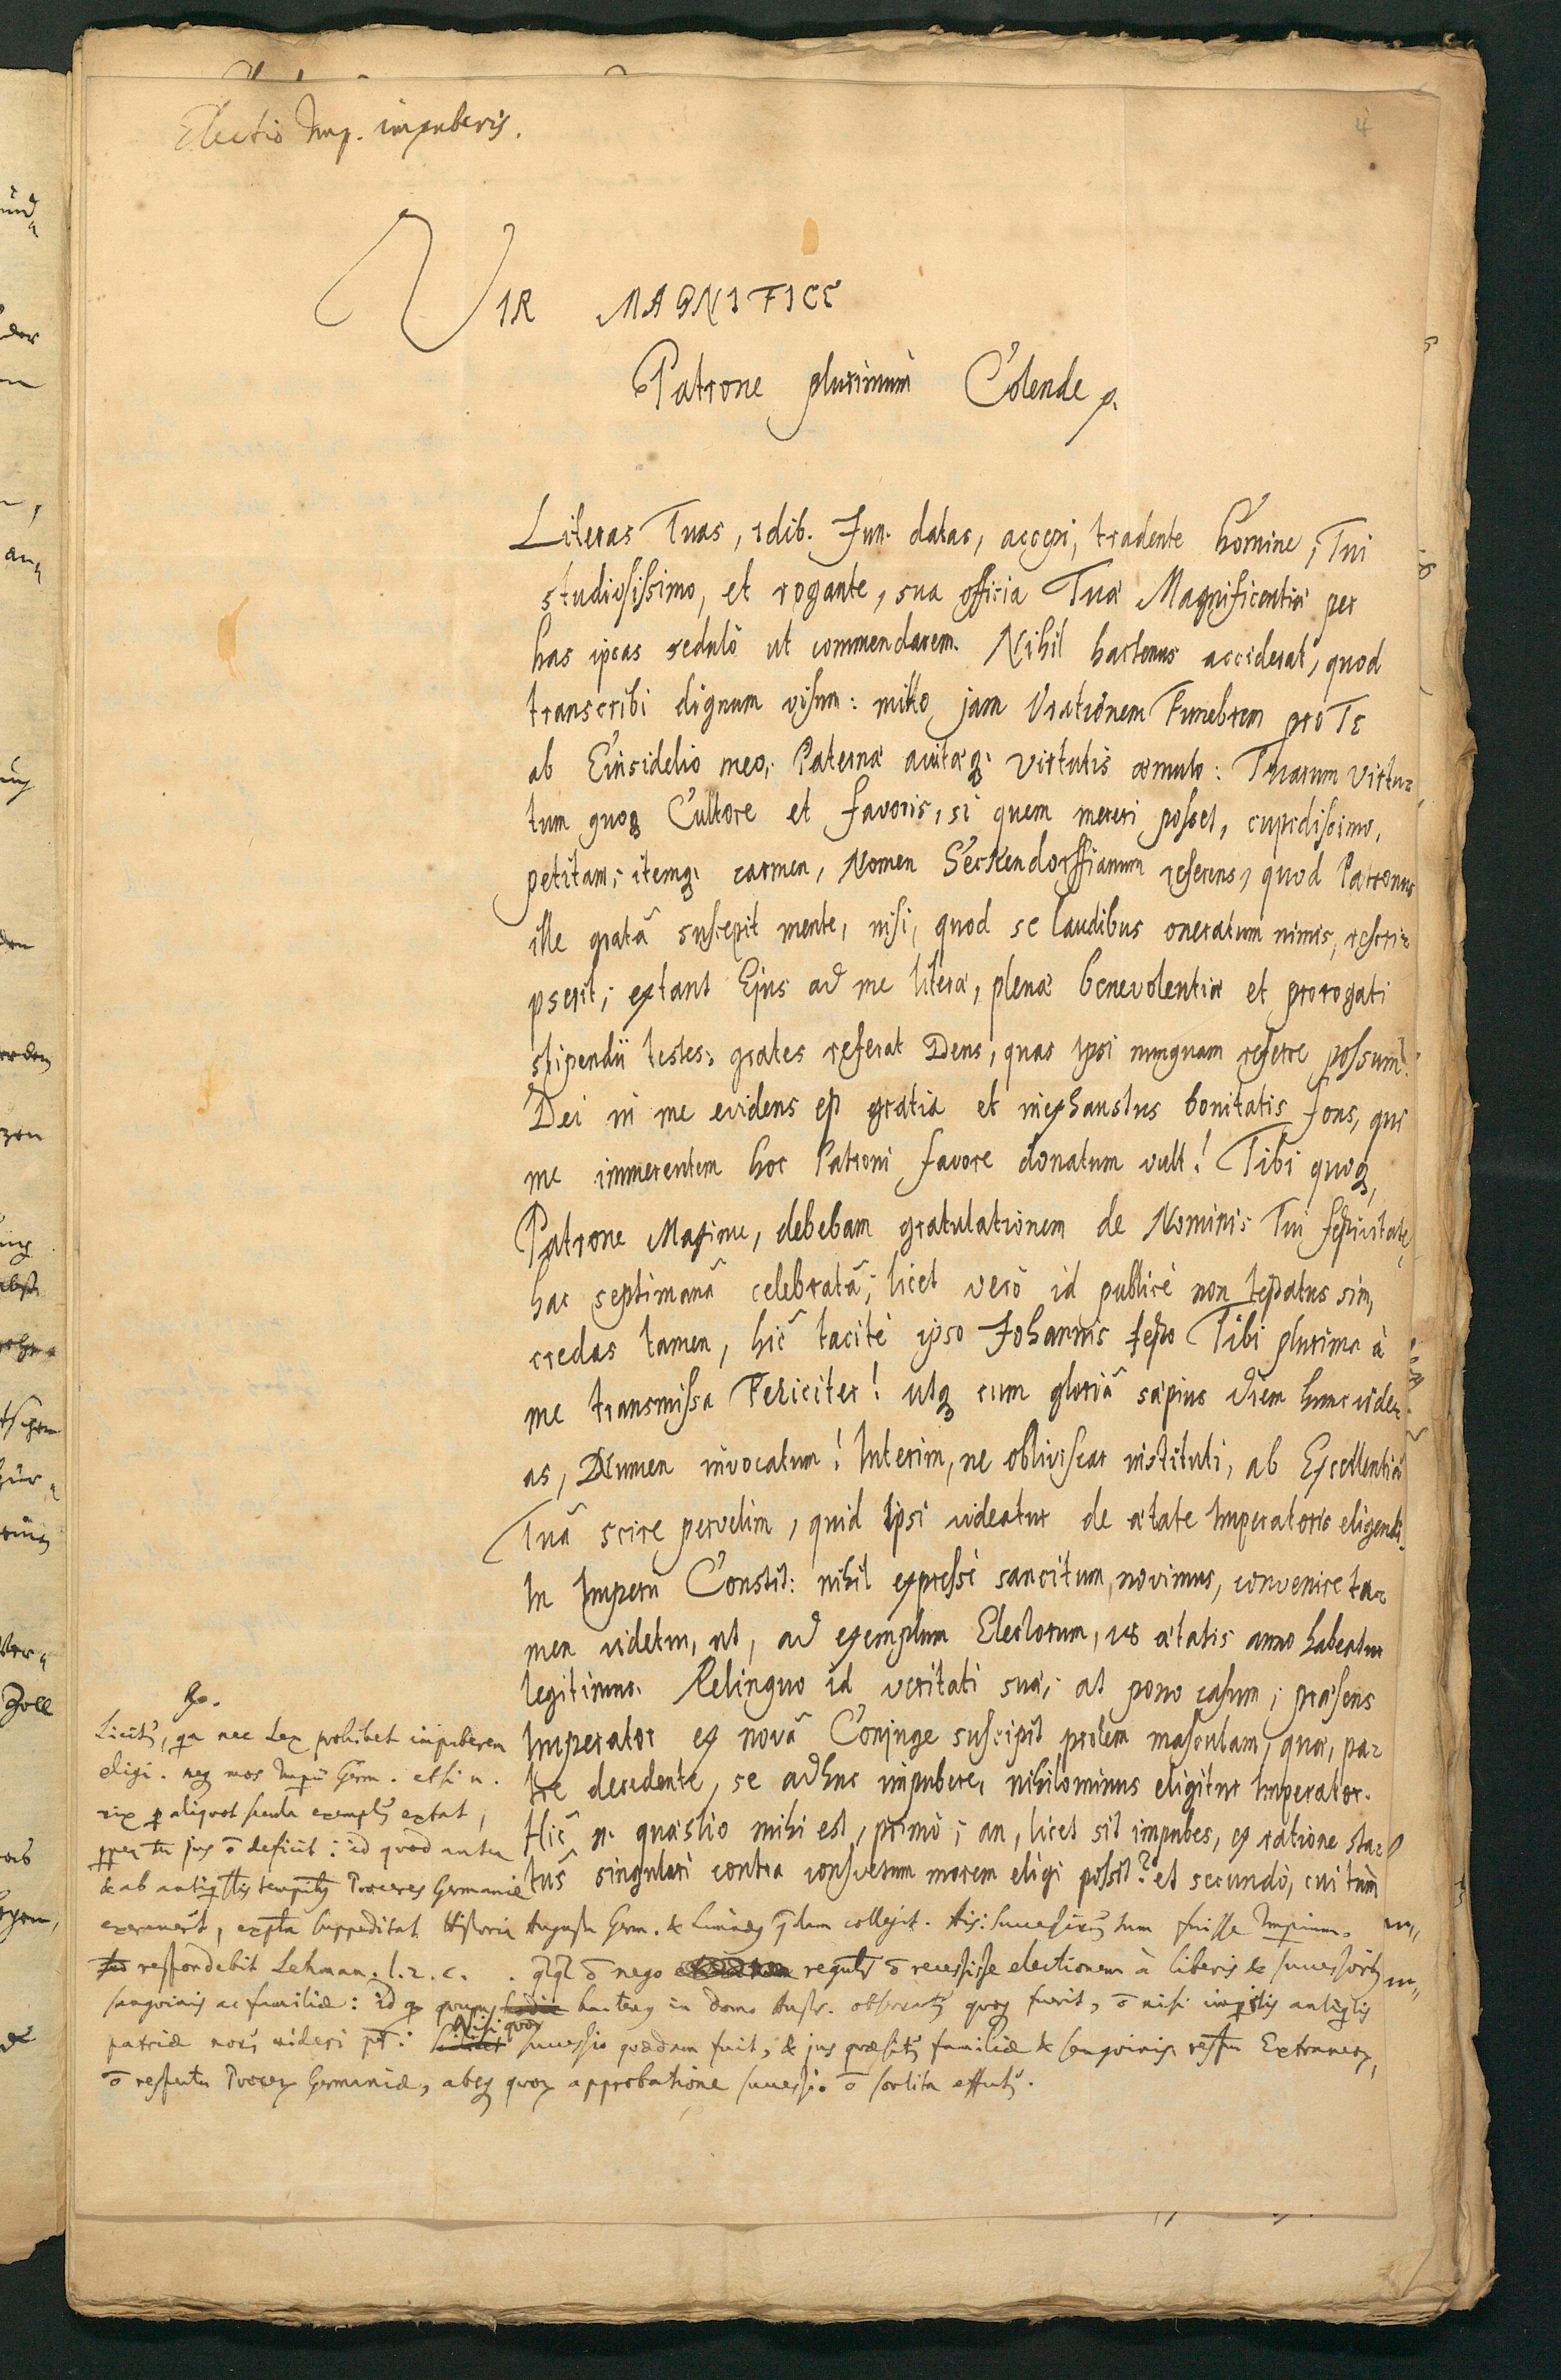 Electio Imp. impuberis.
4
VIR MAGNIFICE
Patrone plurimùm Colende p.
Literas Tuas, idib. Jun. datas, accepi, tradente homine, Tui
studiosissimo, et rogante, sua officia Tuæ Magnificentiæ per
has ipsas sedulò ut commendarem. Nihil hactenus acciderat, quod
transcribi dignum visum: mitto jam Orationem Funebrem pro Te
ab Einsidelio meo, Paternæ avitæq; virtutis æmulo: Tuarum virtu-
tum quoq; Cultore et favoris, si quem mereri posset, cupidissimo,
petitam; itemq; carmen, Nomen Seckendorffianum referens, quod Patronus
ille gratâ suscepit mente, nisi, quod se laudibus oneratum nimis, rescri-
pserit; extant Ejus ad me literæ, plenæ benevolentiæ et prorogati
stipendii testes; grates referat Deus, quas ipsi nunquam referre possum!
Dei in me evidens est gratia et inexhaustus bonitatis fons, qui
me immerentem hoc Patroni favore donatum vult! Tibi quoq;
Patrone Maxime, debebam gratulationem de Nominis Tui festivitate,
hac septimanâ celebratâ; licet verò id publicè non testatus sim,
credas tamen, hîc tacitè ipso Johannis festo Tibi plurima à
me transmissa Feliciter! utq; cum gloriâ sæpius diem hunc vide-
as, Numen invocatum! Interim, ne obliviscar instituti, ab Excellentiâ
Tuâ scire pervelim, quid Ipsi videatur de ætate Imperatoris eligendi.
In Imperii Constit: nihil expressè sancitum, novimus, convenire ta-
men videtur, ut, ad exemplum Electorum, 18 ætatis anno habeatur
legitimus. Relinquo id veritati suæ; at pono casum; præsens
Imperator ex novâ Conjuge suscipit prolem masculam, quæ, pa-
tre decedente, se adhuc impubere, nihilominus eligitur Imperator.
Hîc n. quæstio mihi est, primò; an, licet sit impubes, ex ratione sta-
tûs singulari contra consuetum morem eligi possit? et secundò, cui tùm
Licitũ, qa nec Lex prohibet impuberem
eligi. neq mos Impii Germ. etsi n.
vix p aliquot secula exemplũ extat,
propterea tn jus õ deficit: id quod antea
& ab antiqssis temporib Proceres Germaniæ
exercuerũt, expla suppeditat Historia Augusta Germ. & Limnæq qdam collegit. Ais: Successivũ tum fuisse Imperium.
respondebit Lehman. l. 2. c. . qlql õ nego regulr õ recessisse electionem à liberis & successorib
sanguinis ac familiæ: id q hactenq in domo Austr. observatũ quoq fuerit, õ nisi imperitis antiqtis
patriæ novũ videri pt: Nisi quoq successio quædam fuit, & jus quæsitũ familiæ & sanguinis respctu Extraneor,
õ respectu Procer Germaniæ, absq quor approbatione successio õ sortita effectũ.